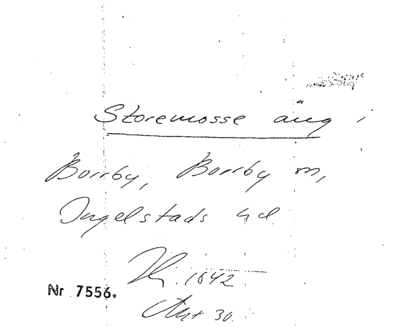 Storemosse äng i
Borrby, Borrby sn,
Ingelstads hd
1842
Nr 7556.
Akt 30.